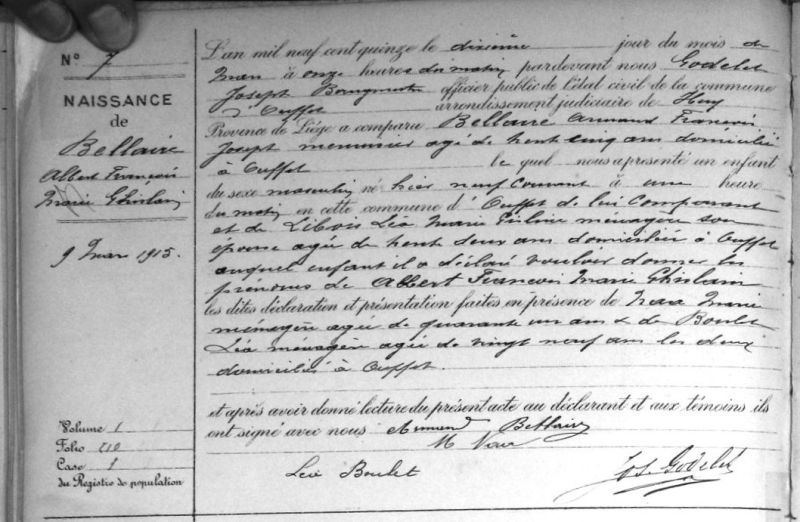 N° 7
NAISSANCE
de
Bellaire
Albert François
Marie Ghislain
9 Mars 1915.
Volume 1
Folio 210
Case 1
du Registre de population
L'an mil neuf cent quinze le dixième jour du mois de
Mars à onze heures du matin pardevant nous Godelet
Joseph Bourgmestre officier public de l'état civil de la commune
d'Ouffet arrondissement judiciaire de Huy
Province de Liége a comparu Bellaire Armand François
Joseph menuisier agé de trente cinq ans domicilié
à Ouffet le quel nous a présenté un enfant
du sexe masculin né hier neuf courant à une heure
du matin en cette commune d'Ouffet de lui Comparant
et de Libois Léa Marie ménagère son
épouse agée de trente deux ans domiciliée à Ouffet
auquel enfant il a déclaré vouloir donner les
prénoms de Albert François Marie Ghislain
les dites déclaration et présentation faites en présence de Marie
ménagère agée de quarante un ans & de Boulet
Léa ménagère agée de vingt neuf ans les deux
domiciliés à Ouffet.
et après avoir donné lecture du présent acte au déclarant et aux témoins ils
ont signé avec nous Armand Bellaire
M
Léa Boulet
Jos. Godelet